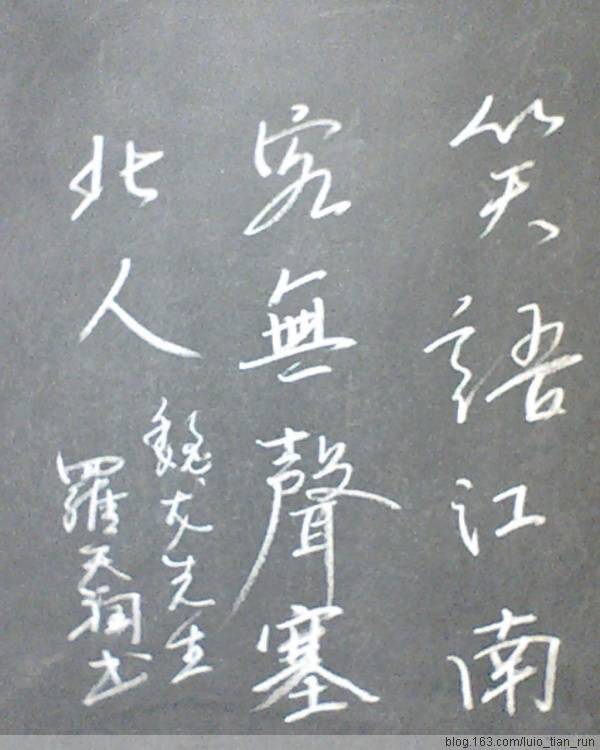 笑語江南
客無聲塞
北人
魏友先生
羅天潤书
blog.163.com/luio_tian_run